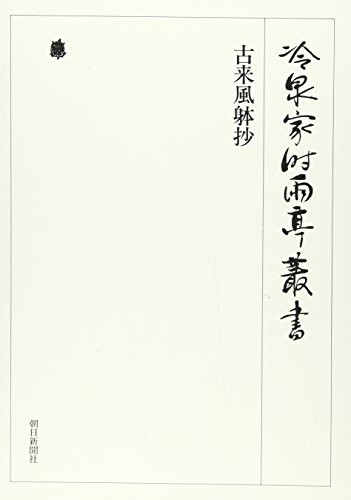 冷泉家時雨亭叢書
古来風躰抄
朝日新聞社